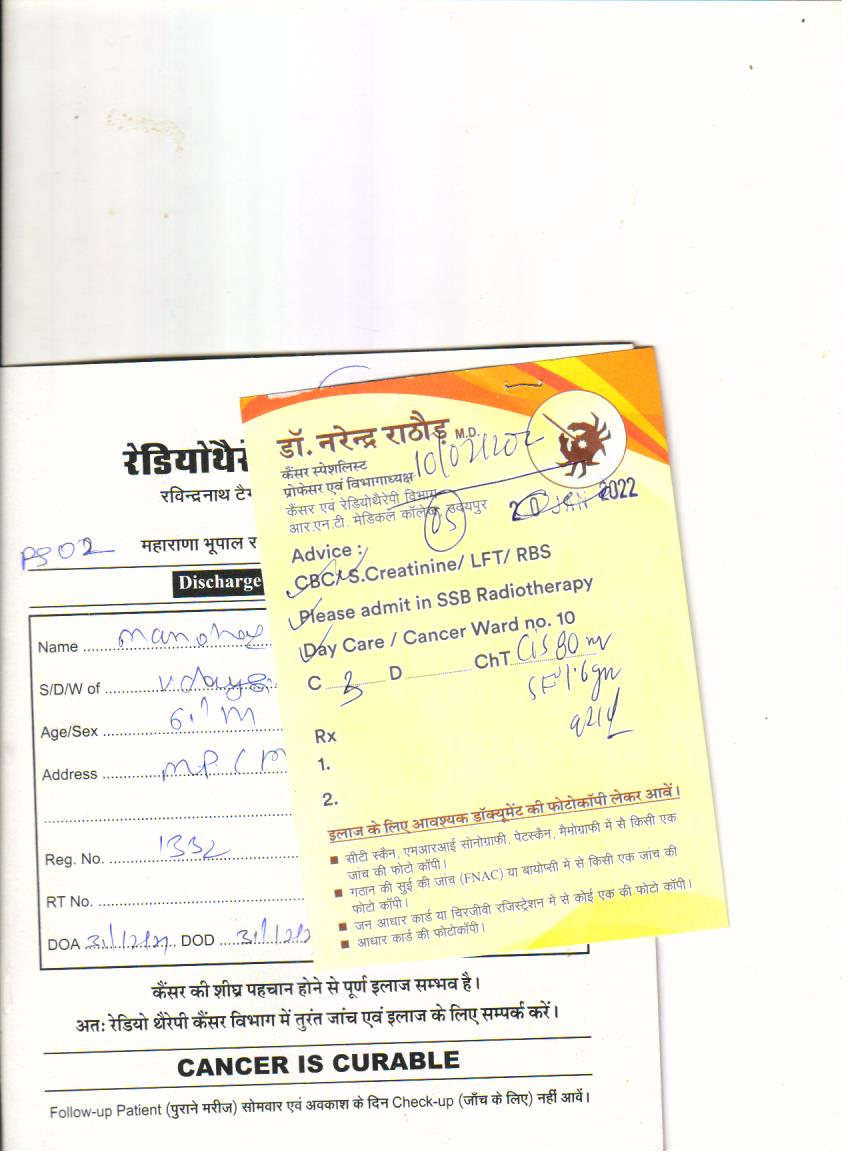 रेडियोथैरे
रविन्द्रनाथ टैग
PS02
महाराणा भूपाल र
Discharge
Name
S/D/W of
Age/Sex M
Address M.P. (M
Reg. No. 1332
RT No.
DOA 31/12/21 DOD 31/12/2
डॉ. नरेन्द्र राठौड़ M.D.
कैंसर स्पेशलिस्ट
प्रोफेसर एवं विभागाध्यक्ष
कैंसर एवं रेडियोथैरेपी विभाग
आर.एन.टी. मेडिकल कॉलेज, उदयपुर
JAN 2022
05
Advice :
CBC/ S.Creatinine/ LFT/ RBS
Please admit in SSB Radiotherapy
Day Care / Cancer Ward no. 10
C 3 D ChT Cis 80 m
1.6 gm
q21d
Rx
1.
2.
इलाज के लिए आवश्यक डॉक्यूमेंट की फोटोकॉपी लेकर आवें।
सीटी स्कैन, एमआरआई सोनोग्राफी, पेटस्कैन, मैमोग्राफी में से किसी एक
जांच की फोटो कॉपी।
गठान की सुई की जांच (FNAC) या बायोप्सी में से किसी एक जांच की
फोटो कॉपी।
जन आधार कार्ड या चिरंजीवी रजिस्ट्रेशन में से कोई एक की फोटो कॉपी।
आधार कार्ड की फोटोकॉपी।
कैंसर की शीघ्र पहचान होने से पूर्ण इलाज सम्भव है।
अतः रेडियो थैरेपी कैंसर विभाग में तुरंत जांच एवं इलाज के लिए सम्पर्क करें।
CANCER IS CURABLE
Follow-up Patient (पुराने मरीज) सोमवार एवं अवकाश के दिन Check-up (जाँच के लिए) नहीं आवें।